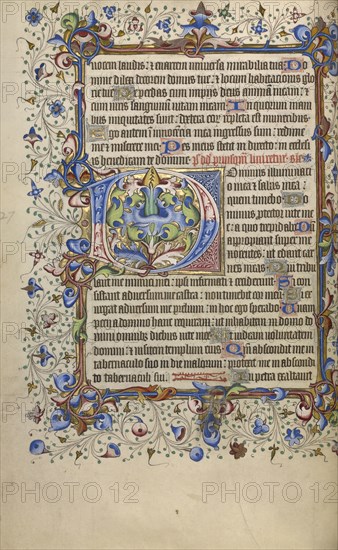 uocem laudis: & enarrem uniuersa mirabilia tua Do
mine dilexi decorem domus tue: & locum habitationis glo
rie tue Ne perdas cum impiis deus animam meam: &
cum uiris sanguinum uitam meam In quorum mani
bus iniquitates sunt: dextera eorum repleta est muneribus
Ego autem in innocentia mea ingressus sum: redime
me & miserere mei Pes meus stetit in directo: in ecclesi
is benedicam te domine
Dominus illuminatio
mea & salus mea:
quem timebo
Dominus protector uite me
e: a quo trepidabo
appropiant super me
nocentes: ut edant car
nes meas Qui tribu
lant me inimici mei: ipsi infirmati & ceciderunt Si con
sistant aduersum me castra: non timebit cor meum Si ex
urgat aduersum me prelium: in hoc ego sperabo Unam
pecii a domino hanc requiram: ut inhabitem in domo do
mini omnibus diebus uite mee Ut uideam uoluntatem
domini: & uisitem templum eius Quoniam abscondit me in
tabernaculo suo in die malorum: protexit me in abscondi
to tabernaculi sui In petra exaltauit
PHOTO 12